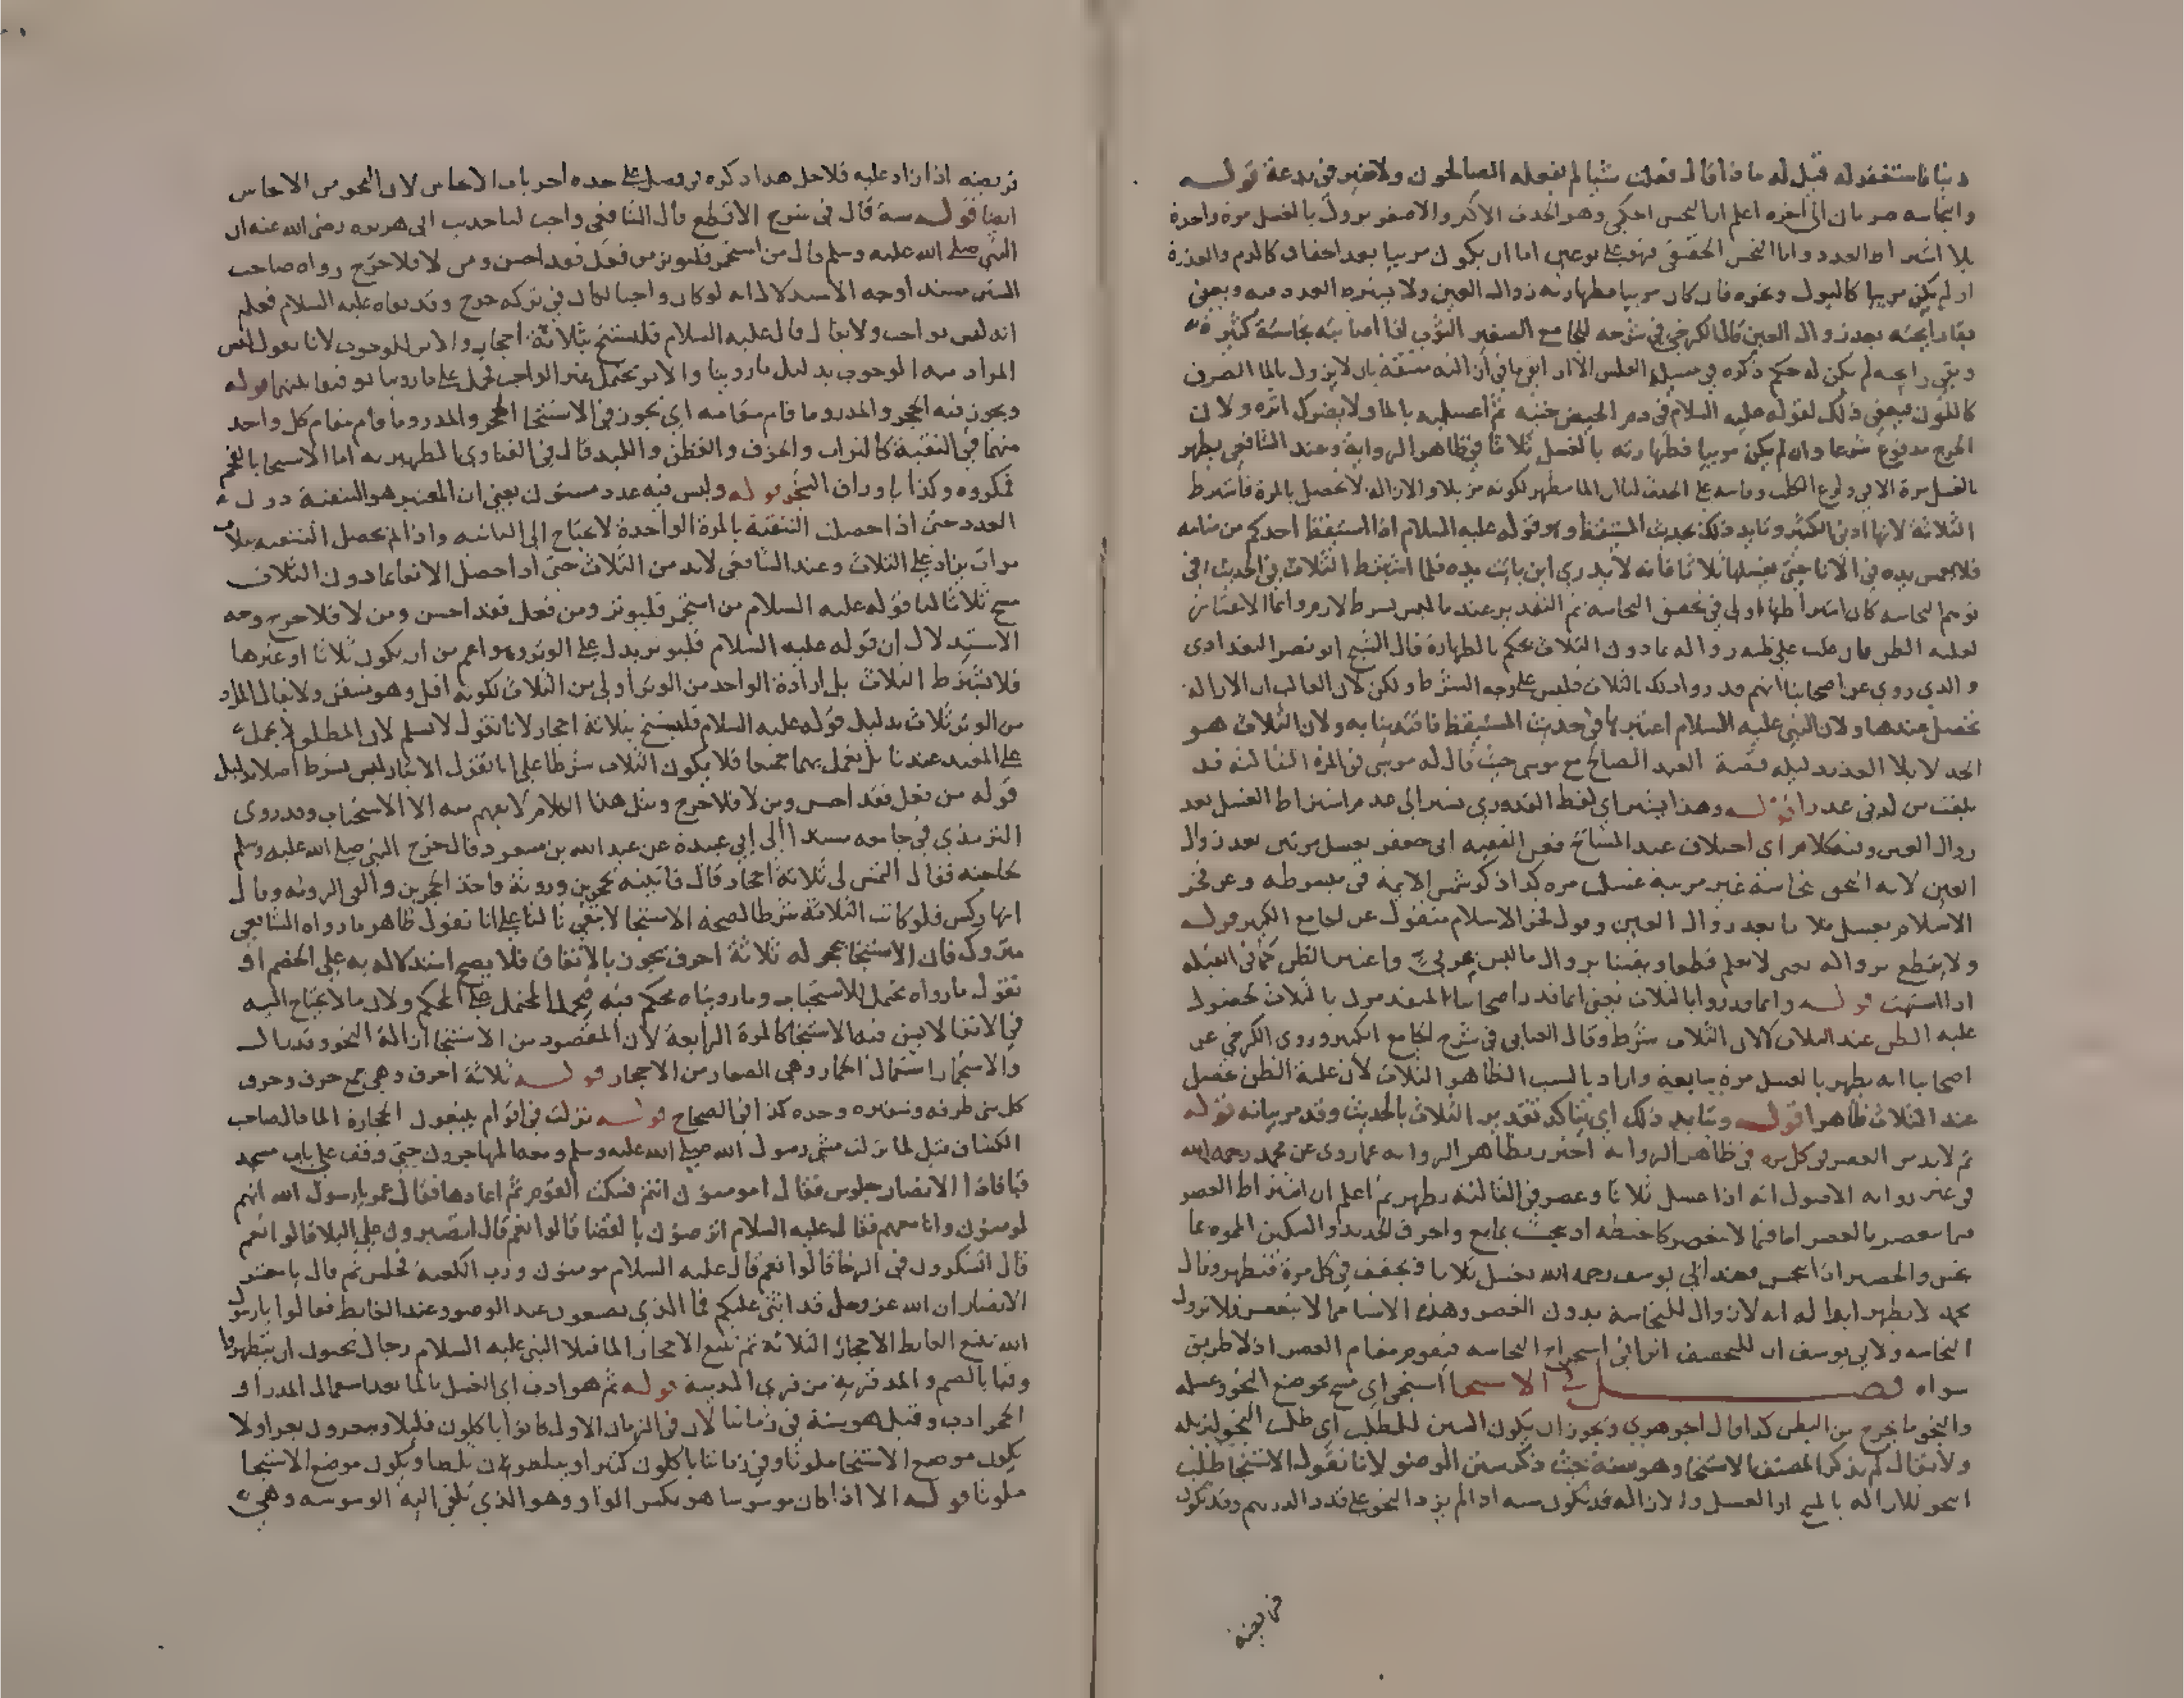 ذنبا فاستغفر له فقيل له ماذا قال فعلت شيا لم يفعله الصالحون ولا خير في بدعة قوله
والنجاسة ضربان الى اخره اعلم ان النجس الحكمي وهو الحدث الاكبر والاصغر يزول بالغسل مرة واحدة
بلا اشتراط العدد واما النجس الحقيقي فهو على نوعين اما ان يكون مرئيا بعد الجفاف كالدم والعذرة
او لم يكن مرئيا كالبول وغيره فان كان مرئيا فطهارته زوال العين ولا يشترط العدد فيه ويعفى
بقا رايحته بعد زوال العين قال الكرخي في شرحه للجامع الصغير الثوب اذا اصابته نجاسة كثيرة
وبقي رايحته لم يكن له حكم ذكره في الا ان ابقى ما في ازالته مشقة بان لا يزول بالما الصرف
كاللون فيعفى ذلك لقوله عليه السلام في دم الحيض حتيه ثم اغسليه بالما ولا يضرك اثره ولان
الحرج مدفوع شرعا وان لم يكن مرئيا فطهارته بالغسل ثلاثا في ظاهر الرواية وعند الشافعي يطهر
بالغسل مرة الا في ولوغ الكلب وقاسه على الحدث لنا ان الما مطهر لكونه مزيلا والازالة لا تحصل بالمرة فاشترط
الثلاثة لانها ادنى الكثير وتايد ذلك بحديث المستيقظ وهو قوله عليه السلام اذا استيقظ احدكم من منامه
فلا يغمس يده في الانا حتى يغسلها ثلاثا فانه لا يدري اين باتت يده فلما اشترط الثلاث في الحديث في
توهم النجاسة كان اشتراطها اولى في تحقق النجاسة ثم التقدير عندنا ليس بشرط لازم وانما الاعتبار
لغلبة الظن فان غلب على ظنه زواله بما دون الثلاث يحكم بالطهارة قال الشيخ ابو نصر البغدادي
والذي روي عن اصحابنا انهم قدروا ذلك بالثلاث فليس على وجه الشرط ولكن لان الغالب ان الازالة
تحصل عندها ولان النبي عليه السلام اعتبرها في حديث المستيقظ فاقتدينا به ولان الثلاث هو
الحد لابلا العذر بدليله قصة العبد الصالح مع موسى حيث قال له موسى في المرة الثالثة قد
بلغت من لدني عذرا قوله وهذا يشير اي لفظ القدوري يشير الى عدم اشتراط الغسل بعد
زوال العين وفيه كلام اي اختلاف عند المشايخ فعن الفقيه ابي جعفر يغسل مرتين بعد زوال
العين لانه التحق بنجاسة غير مرئية غسلت مرة كذا ذكر شمس الايمة في مبسوطه وعن فخر
الاسلام يغسل ثلاثا بعد زوال العين وقول فخر الاسلام منقول عن الجامع الكبير قوله
ولا يقطع بزواله يعني لا يعلم قطعا ويقينا بزوال ما ليس بمرئي واعتبر الظن كما في القبلة
اذا اشتبهت قوله وانما قدروا بالثلاث يعني انما قدر اصحابنا المتقدمون بالثلاث لحصول
غلبة الظن عند الثلاث لا لان الثلاث شرط وقال العتابي في شرح الجامع الكبير وروى الكرخي عن
اصحابنا انه يطهر بالغسل مرة سابغة واراد بالسبب الظاهر الثلاث لان غلبة الظن تحصل
عند الثلاث ظاهرا قوله وتايد ذلك اي يتاكد تقدير الثلاث بالحديث وقد مر بيانه قوله
ثم لا بد من العصر في كل مرة في ظاهر الرواية احترز بظاهر الرواية عما روي عن محمد رحمه الله
في غير رواية الاصول انه اذا غسل ثلاثا وعصر في الثالثة يطهر ثم اعلم ان اشتراط العصر
فيما ينعصر بالعصر اما فيما لا ينعصر كالحنطة اذا تنجست بمايع والخزف الجديد والسكين المموه بما
نجس والحصير اذا تنجس فعند ابي يوسف رحمه الله يغسل ثلاثا ويجفف في كل مرة فتطهر وقال
محمد لا يطهر ابدا له انه لا زوال للنجاسة بدون العصر وهذه الاشيا مما لا ينعصر فلا تزول
النجاسة ولابي يوسف ان للتجفيف اثرا في استخراج النجاسة فيقوم مقام العصر اذ لا طريق
سواه فصل في الاستنجا استنجى اي مسح موضع النجو وغسله
والنجو ما يخرج من البطن كذا قال الجوهري ويجوز ان يكون السين للطلب اي طلب النجو ليزيله
ولا يقال لم يذكر المصنف الاستنجا وهو سنة حيث ذكر سنن الوضو لانا نقول الاستنجا طلب
النجو للازالة بالمسح او الغسل والازالة قد تكون سنة اذا لم يزد النجو على قدر الدرهم وقد تكون
فريضة
فريضة اذا زاد عليه فلاجل هذا ذكره في فصل على حدة اخر باب الانجاس لان النجو من الانجاس
ايضا قوله سنة قال في شرح الاقطع قال الشافعي واجب لنا حديث ابي هريرة رضي الله عنه ان
النبي صلى الله عليه وسلم قال من استجمر فليوتر من فعل فقد احسن ومن لا فلا حرج رواه صاحب
السنن مسندا وجه الاستدلال انه لو كان واجبا لكان في تركه حرج وقد نفاه عليه السلام فعلم
انه ليس بواجب ولا يقال قال عليه السلام فليستنج بثلاثة احجار والامر للوجوب لانا نقول ليس
المراد منه الوجوب بدليل ما روينا والامر يحتمل غير الواجب فحمل على ما روينا توفيقا بينهما قوله
ويجوز فيه الحجر والمدر وما قام مقامه اي يجوز في الاستنجا الحجر والمدر وما قام مقام كل واحد
منهما في التنقية كالتراب والخزف والقطن واللبد قال في الفتاوي الظهيرية اما الاستنجا بالفحم
فمكروه وكذا باوراق الشجر قوله وليس فيه عدد مسنون يعني ان المعتبر هو التنقية دون
العدد حتى اذا حصلت التنقية بالمرة الواحدة لا يحتاج الى الثانية واذا لم يحصل التنقية بثلاث
مرات يزاد على الثلاث وعند الشافعي لا بد من الثلاث حتى اذا حصل الانقا بما دون الثلاث
مسح ثلاثا لنا قوله عليه السلام من استجمر فليوتر ومن فعل فقد احسن ومن لا فلا حرج وجه
الاستدلال ان قوله عليه السلام فليوتر يدل على الوتر وهو اعم من ان يكون ثلاثا او غيرها
فلا تشترط الثلاث بل ارادة الواحد من الوتر اولى من الثلاث لكونه اقل وهو متيقن ولا يقال المراد
من الوتر ثلاث بدليل قوله عليه السلام فليستنج بثلاثة احجار لانا نقول لا نسلم لان المطلق لا يحمل
على المقيد عندنا بل يعمل بهما جميعا فلا يكون الثلاث شرطا على انا نقول الايتار ليس بشرط اصلا بدليل
قوله من فعل فقد احسن ومن لا فلا حرج ومثل هذا الكلام لا يفهم منه الا الاستحباب وقد روى
الترمذي في جامعه مسندا الى ابي عبيدة عن عبد الله بن مسعود قال خرج النبي صلى الله عليه وسلم
لحاجته فقال التمس لي ثلاثة احجار قال فاتيته بحجرين وروثة فاخذ الحجرين والقى الروثة وقال
انها ركس فلو كانت الثلاثة شرطا لصحة الاستنجا لا ثالثا على انا نقول ظاهر ما رواه الشافعي
متروك فان الاستنجا بحجر له ثلاثة احرف يجوز بالاتفاق فلا يصح استدلاله به على الخصم او
نقول ما رواه محتمل للاستحباب وما رويناه محكم فيه فيحمل المحتمل على المحكم ولان ما لا يحتاج اليه
في الانقا لا يسن فيه الاستنجا كالمرة الرابعة لان المقصود من الاستنجا ازالة النجو وقد زال
والاستجمار استعمال الجمار وهي الصغار من الاحجار قوله ثلاثة احرف وهي جمع حرف وحرف
كل شي طرفه وشفيره وحده كذا في الصحاح قوله نزلت في اقوام يتبعون الحجارة الما قال صاحب
الكشاف قيل لما نزلت مشى رسول الله صلى الله عليه وسلم ومعه المهاجرون حتى وقف على باب مسجد
قبا فاذا الانصار جلوس فقال امومنون انتم فسكت القوم ثم اعادها فقال عمر يا رسول الله انهم
لمومنون وانا معهم فقال عليه السلام اترضون بالقضا قالوا نعم قال اتصبرون على البلا قالوا نعم
قال اتشكرون في الرخا قالوا نعم قال عليه السلام مومنون ورب الكعبة فجلس ثم قال يا معشر
الانصار ان الله عز وجل قد اثنى عليكم فما الذي تصنعون عند الوضو وعند الغايط فقالوا يا رسول
الله نتبع الغايط الاحجار الثلاثة ثم نتبع الاحجار الما فتلا النبي عليه السلام رجال يحبون ان يتطهروا
وقبا بالضم والمد قرية من قرى المدينة قوله ثم هو ادب اي الغسل بالما بعد استعمال المدر او
الحجر ادب وقيل هو سنة في زماننا لان في الزمان الاول كانوا ياكلون قليلا ويبعرون بعرا ولا
يكون موضع الاستنجا ملوثا وفي زماننا ياكلون كثيرا ويثلطون ثلطا ويكون موضع الاستنجا
ملوثا قوله الا اذا كان موسوسا هو بكسر الواو وهو الذي تلقى اليه الوسوسه وهي